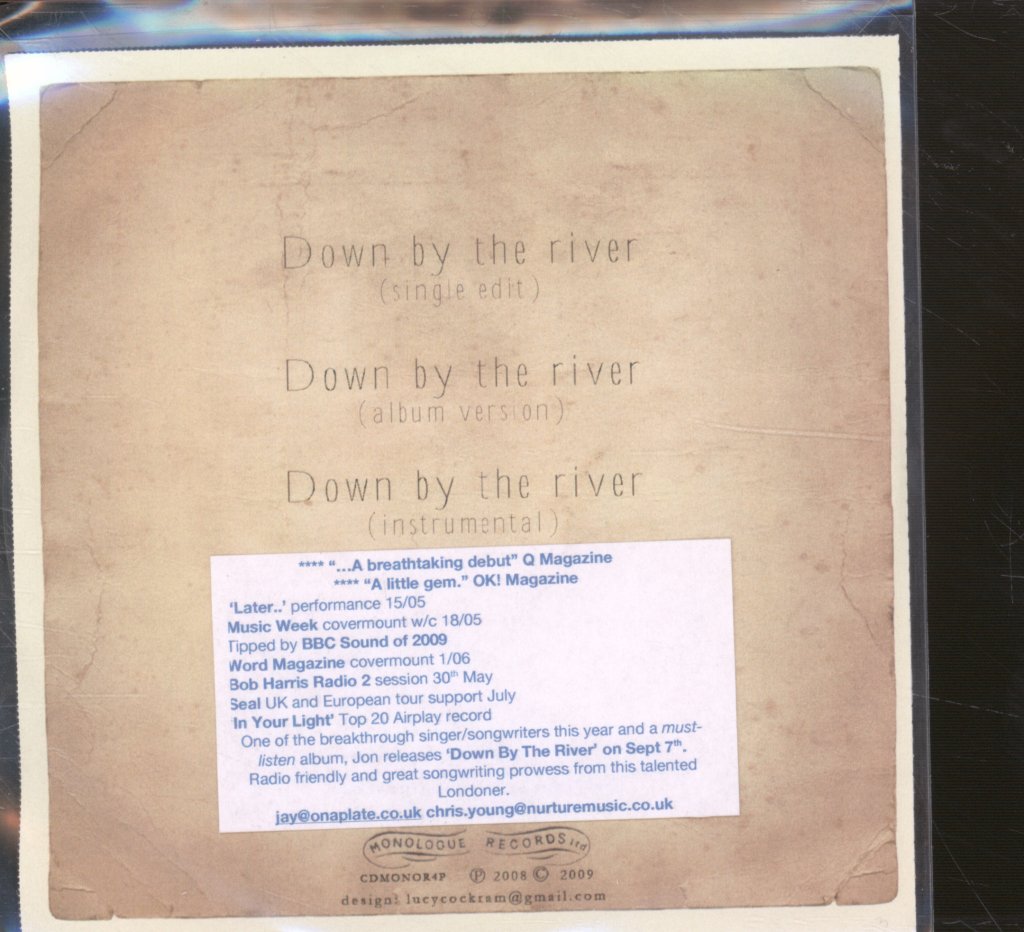 Down by the river
(single edit)
Down by the river
(album version)
Down by the river
(instrumental)
**** “...A breathtaking debut” Q Magazine
**** “A little gem.” OK! Magazine
‘Later..’ performance 15/05
Music Week covermount w/c 18/05
Tipped by BBC Sound of 2009
Word Magazine covermount 1/06
Bob Harris Radio 2 session 30th May
Seal UK and European tour support July
‘In Your Light’ Top 20 Airplay record
One of the breakthrough singer/songwriters this year and a must-
listen album, Jon releases ‘Down By The River’ on Sept 7th.
Radio friendly and great songwriting prowess from this talented
Londoner.
jay@onaplate.co.uk chris.young@nurturemusic.co.uk
MONOLOGUE RECORDS ltd
CDMONOR4P ℗ 2008 © 2009
design: lucycockram@gmail.com